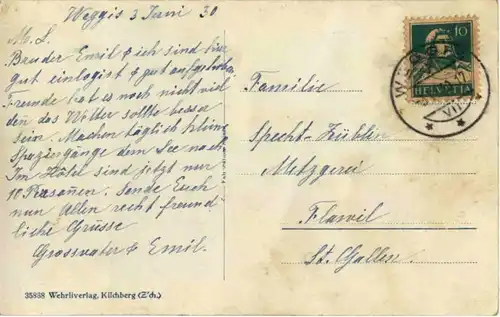 Weggis 3 Juni 30
M. L.
Bruder Emil & ich sind hier
gut einlogist & gut aufgehoben
Fremde hat es noch nicht viel
den das Wetter sollte besser
sein. Machen täglich kleine
Spaziergänge dem See nach
Im Hôtel sind jetzt nur
10 Personen. Sende Euch
nun Allen recht freund
liche Grüsse
Grossvater & Emil.
35838 Wehrliverlag, Kilchberg (Z'ch.)
10
HELVETIA
Familie
Specht-Züblin
Metzgerei
Flawil
St. Gallen.